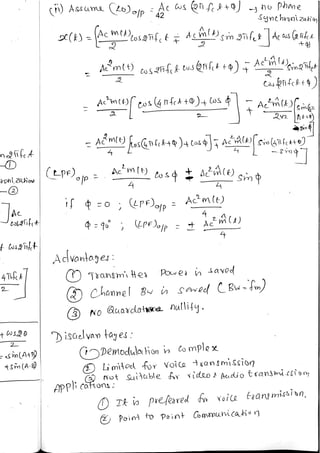 (ii) Assume (LO)o/p = Ac cos (2πfct+φ) → no phase synchronization
42
x(t) = [Ac m(t)/2 cos 2πfct ∓ Ac m̂(t)/2 sin 2πfct] Ac cos(2πfct+φ)
= Ac² m(t)/2 cos 2πfct cos(2πfct+φ) ∓ Ac² m̂(t)/2 sin 2πfct cos(2πfct+φ)
= Ac² m(t)/2 [cos(4πfct+φ) + cos φ / 2] ∓ Ac² m̂(t)/2x2
= Ac² m(t)/4 [cos(4πfct+φ) + cos φ] ∓ Ac² m̂(t)/4 [sin(4πfct+φ) - sin φ]
(LPF)o/p = Ac² m(t)/4 cos φ ± Ac² m̂(t)/4 sin φ
if φ = 0 ; (LPF)o/p = Ac² m(t)/4
φ = 90° ; (LPF)o/p = ± Ac² m̂(t)/4
Advantages :
① Transmitter Power is saved
② Channel BW is saved (BW = fm)
③ No Quardature nullity.
Disadvantages :
① Demodulation is complex
② Limited for voice transmission
③ not suitable for video & Audio transmission
Applications :
① It is preferred for voice transmission,
② Point to Point Communication